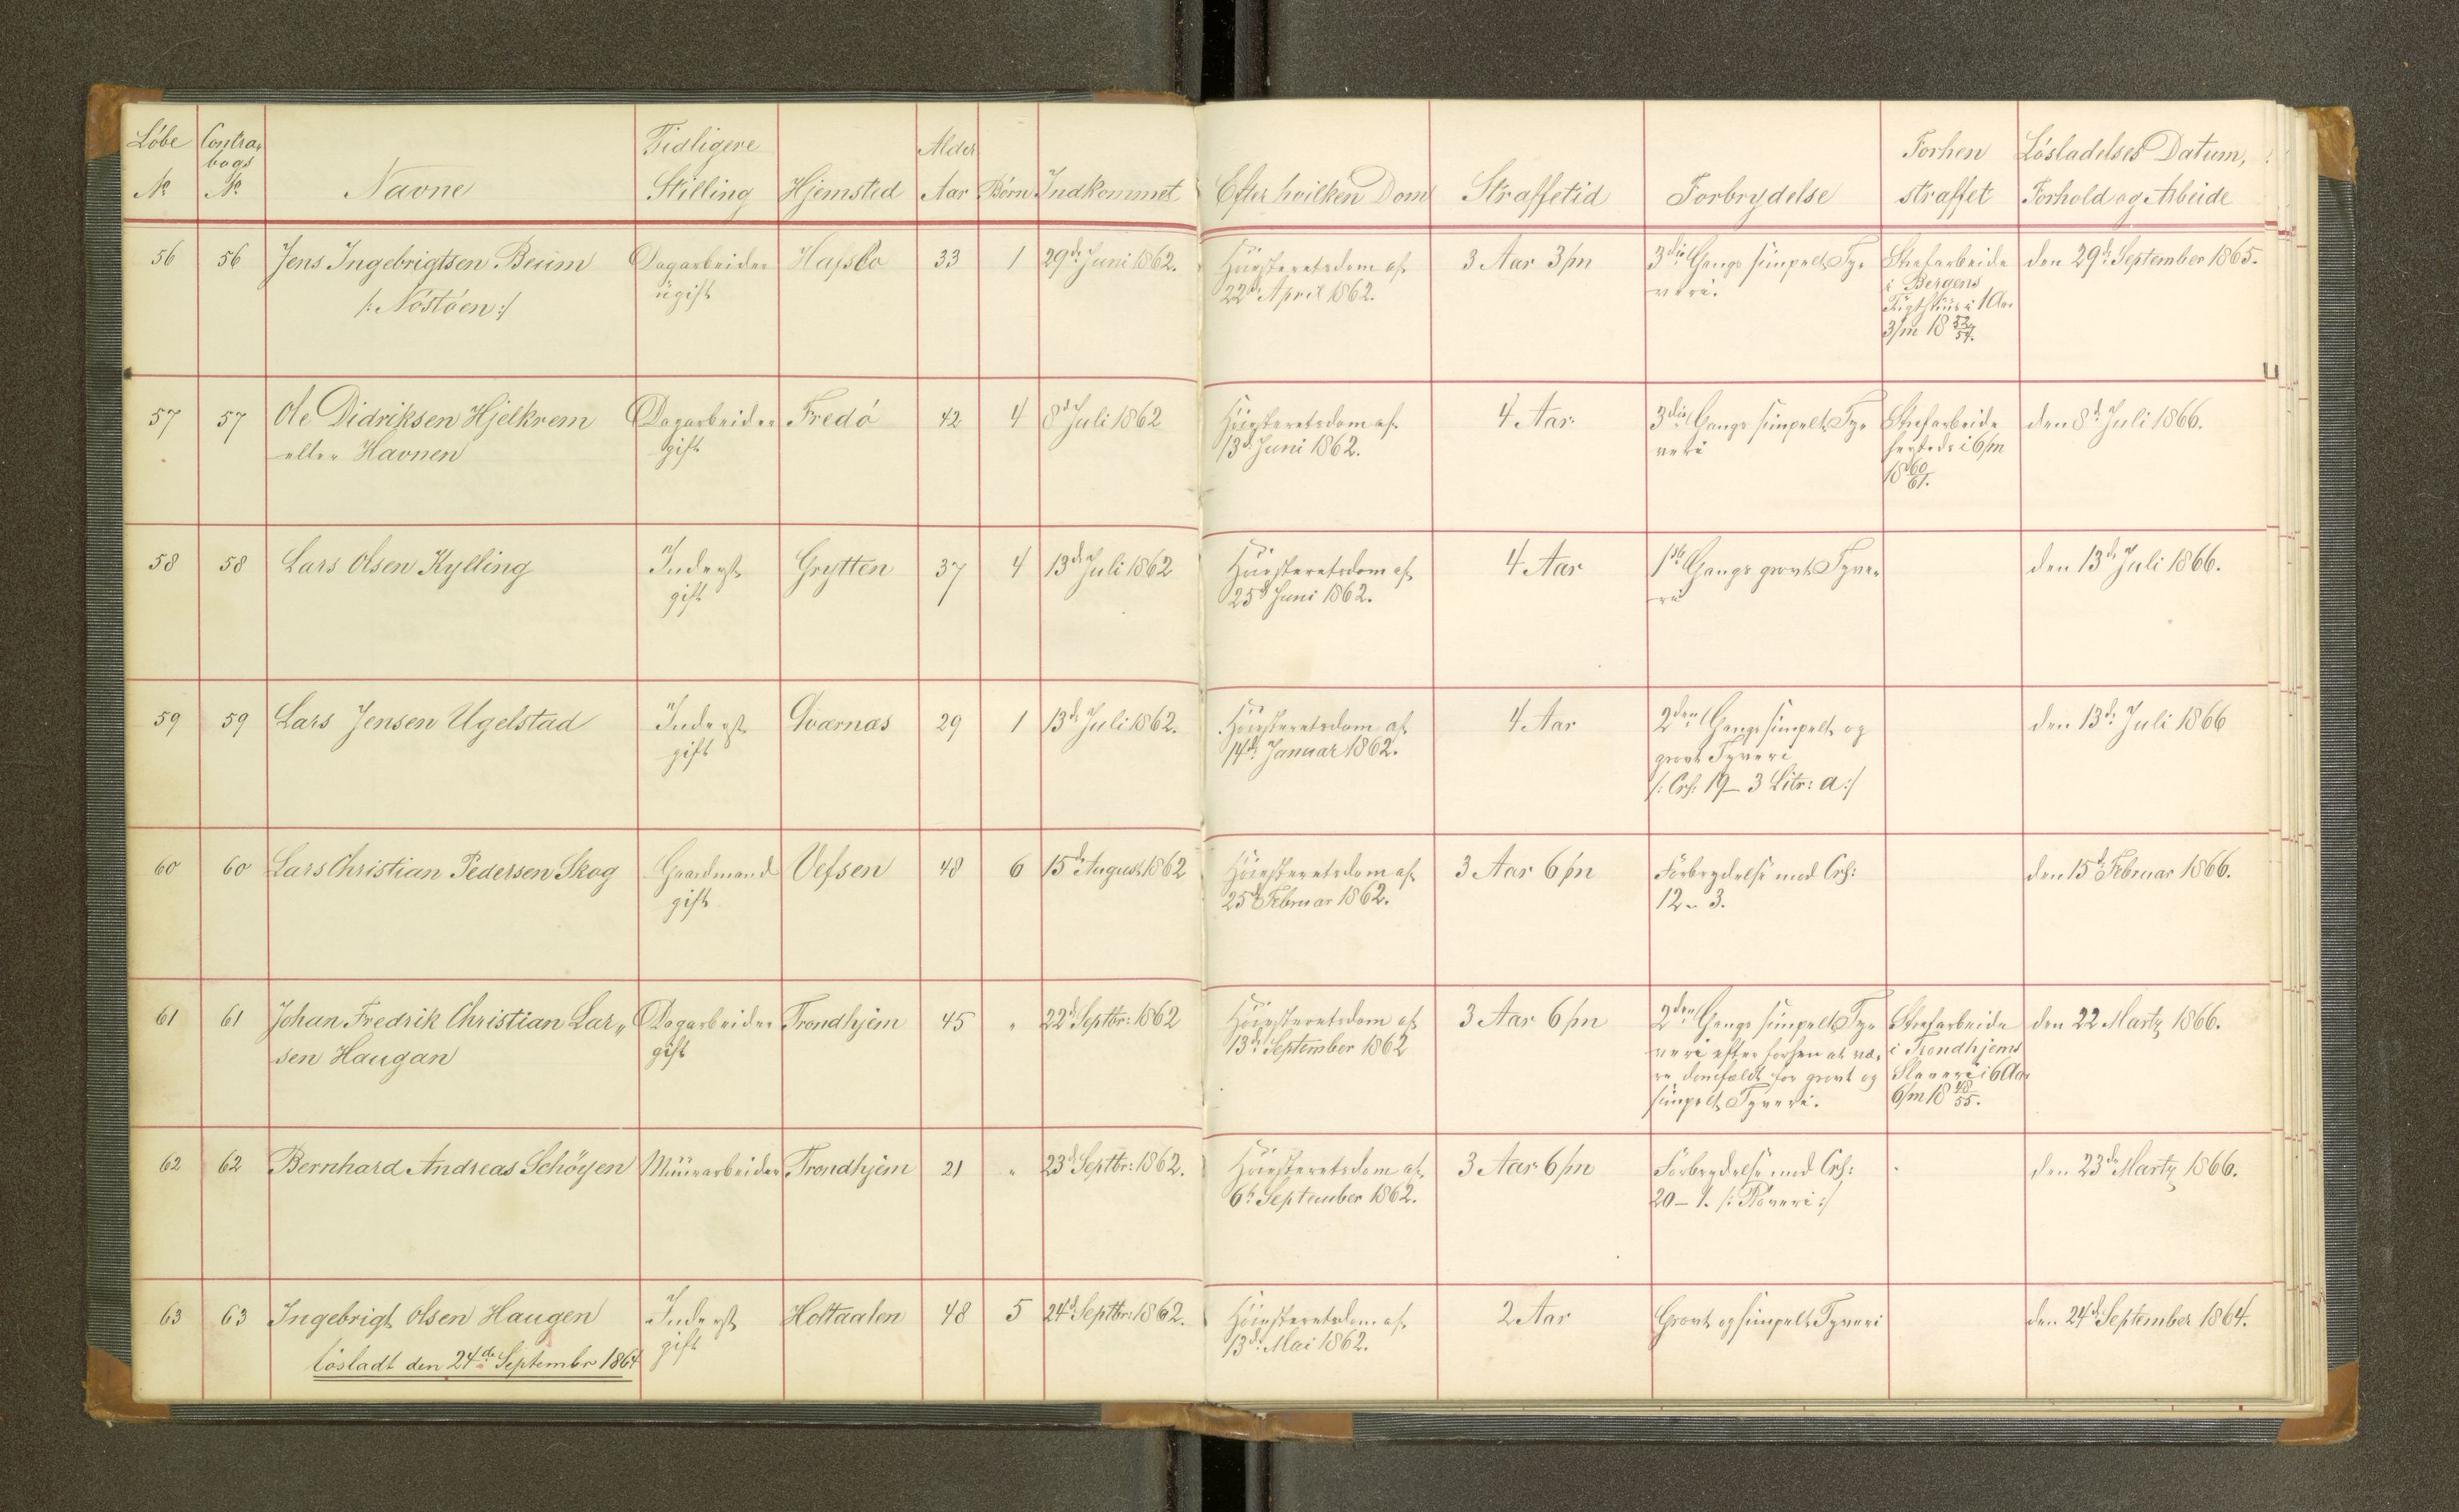 Løbe Contra,
bogs
No No Navne Tidligere Stilling Hjemsted Alder Aar Børn Indkommet Efter hvilken Dom Straffetid Forbrydelse Forhen straffet Løsladelses Datum, Forhold og Arbeide
56 56 Jens Ingebrigtsen Beum Dagarbeider Hafslo 33 1 29de Juni 1862. Høiesteretsdom af 3 Aar 3/m 3die Gangs simpelt Ty, Strafarbeide den 29de September 1865.
/: Nöstöen :/ ugift 22de April 1862. veri. i Bergens
Tugthuus i 1 Aar
3/m 18 52/54.
57 57 Ole Didriksen Hjelkrem Dagarbeider Fredö 42 4 8de Juli 1862 Høiesteretsdom af 4 Aar 3die Gangs simpelt Ty, Strafarbeide den 8de Juli 1866.
eller Havnen gift 13de Juni 1862. veri hersteds i 6/m
18 60/61.
58 58 Lars Olsen Kylling Inderst Grytten 37 4 13de Juli 1862 Høiesteretsdom af 4 Aar 1ste Gangs grovt Tyve, den 13de Juli 1866.
gift 25de Juni 1862. ri
59 59 Lars Jensen Ugelstad Inderst Qværnæs 29 1 13de Juli 1862. Høiesteretsdom af 4 Aar 2den Gangs simpelt og den 13de Juli 1866
gift 14de Januar 1862. grovt Tyveri
/: Crf: 19 – 3 Litr: a :/
60 60 Lars Christian Pedersen Skog Gaardmand Vefsen 48 6 15de August 1862 Høiesteretsdom af 3 Aar 6/m Forbrydelse mod Crf: den 15de Februar 1866.
gift 25de Februar 1862. 12 – 3.
61 61 Johan Fredrik Christian Lar„ Dagarbeider Trondhjem 45 „ 22de Septbr: 1862 Høiesteretsdom af 3 Aar 6/m 2den Gangs simpelt Ty, Strafarbeide den 22 Martz 1866.
sen Haugan gift 13de September 1862 veri efter forhen at væ, i Trondhjems
re domfældt for grovt og Slaveri i 6 Aar
simpelt Tyveri. 6/m 18 48/55.
62 62 Bernhard Andreas Schöyen Muurarbeider Trondhjem 21 „ 23de Septbr: 1862. Høiesteretsdom af 3 Aar 6/m Forbrydelse mod Crf: den 23de Martz 1866.
6te September 1862. 20 – 1. /: Röveri :/
63 63 Ingebrigt Olsen Haugen Inderst Holtaalen 48 5 24de Septbr: 1862. Høiesteretsdom af 2 Aar Grovt og simpelt Tyveri den 24de September 1864.
löslatdt den 24de Septembr 1864 gift 13de Mai 1862.